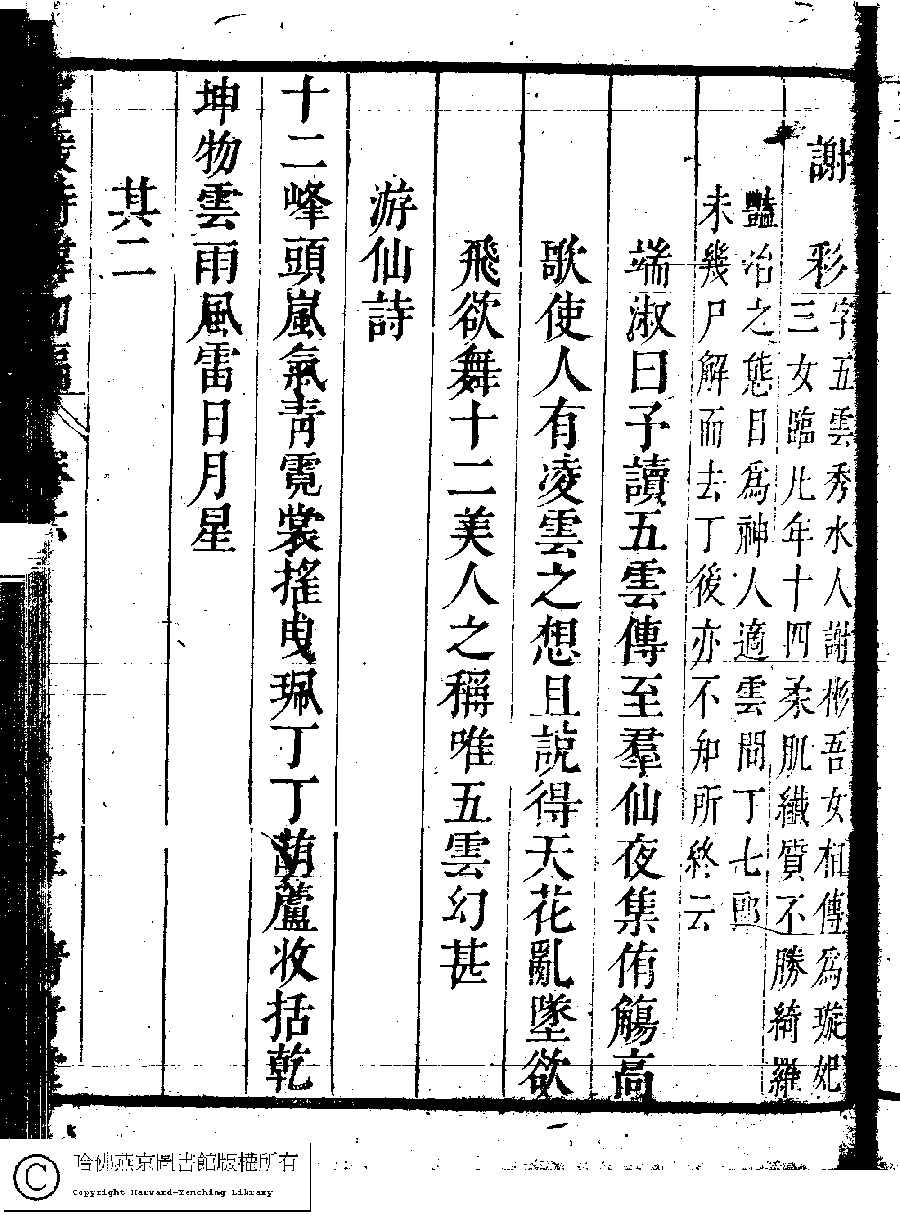 謝彩
字五雲秀水人謝彬吾女相傳爲璇妃
三女臨凡年十四柔肌纖質不勝綺羅
豔冶之態日爲神人適雲間丁七郎
未幾尸解而去丁後亦不知所終云
端淑曰予讀五雲傳至羣仙夜集侑觴高
歌使人有凌雲之想且說得天花亂墜欲
飛欲舞十二美人之稱唯五雲幻甚
游仙詩
十二峰頭嵐氣靑霓裳搖曳珮丁丁葫蘆收括乾
坤物雲雨風雷日月星
其二
哈佛燕京圖書館版權所有
Copyright Harvard-Yenching Library